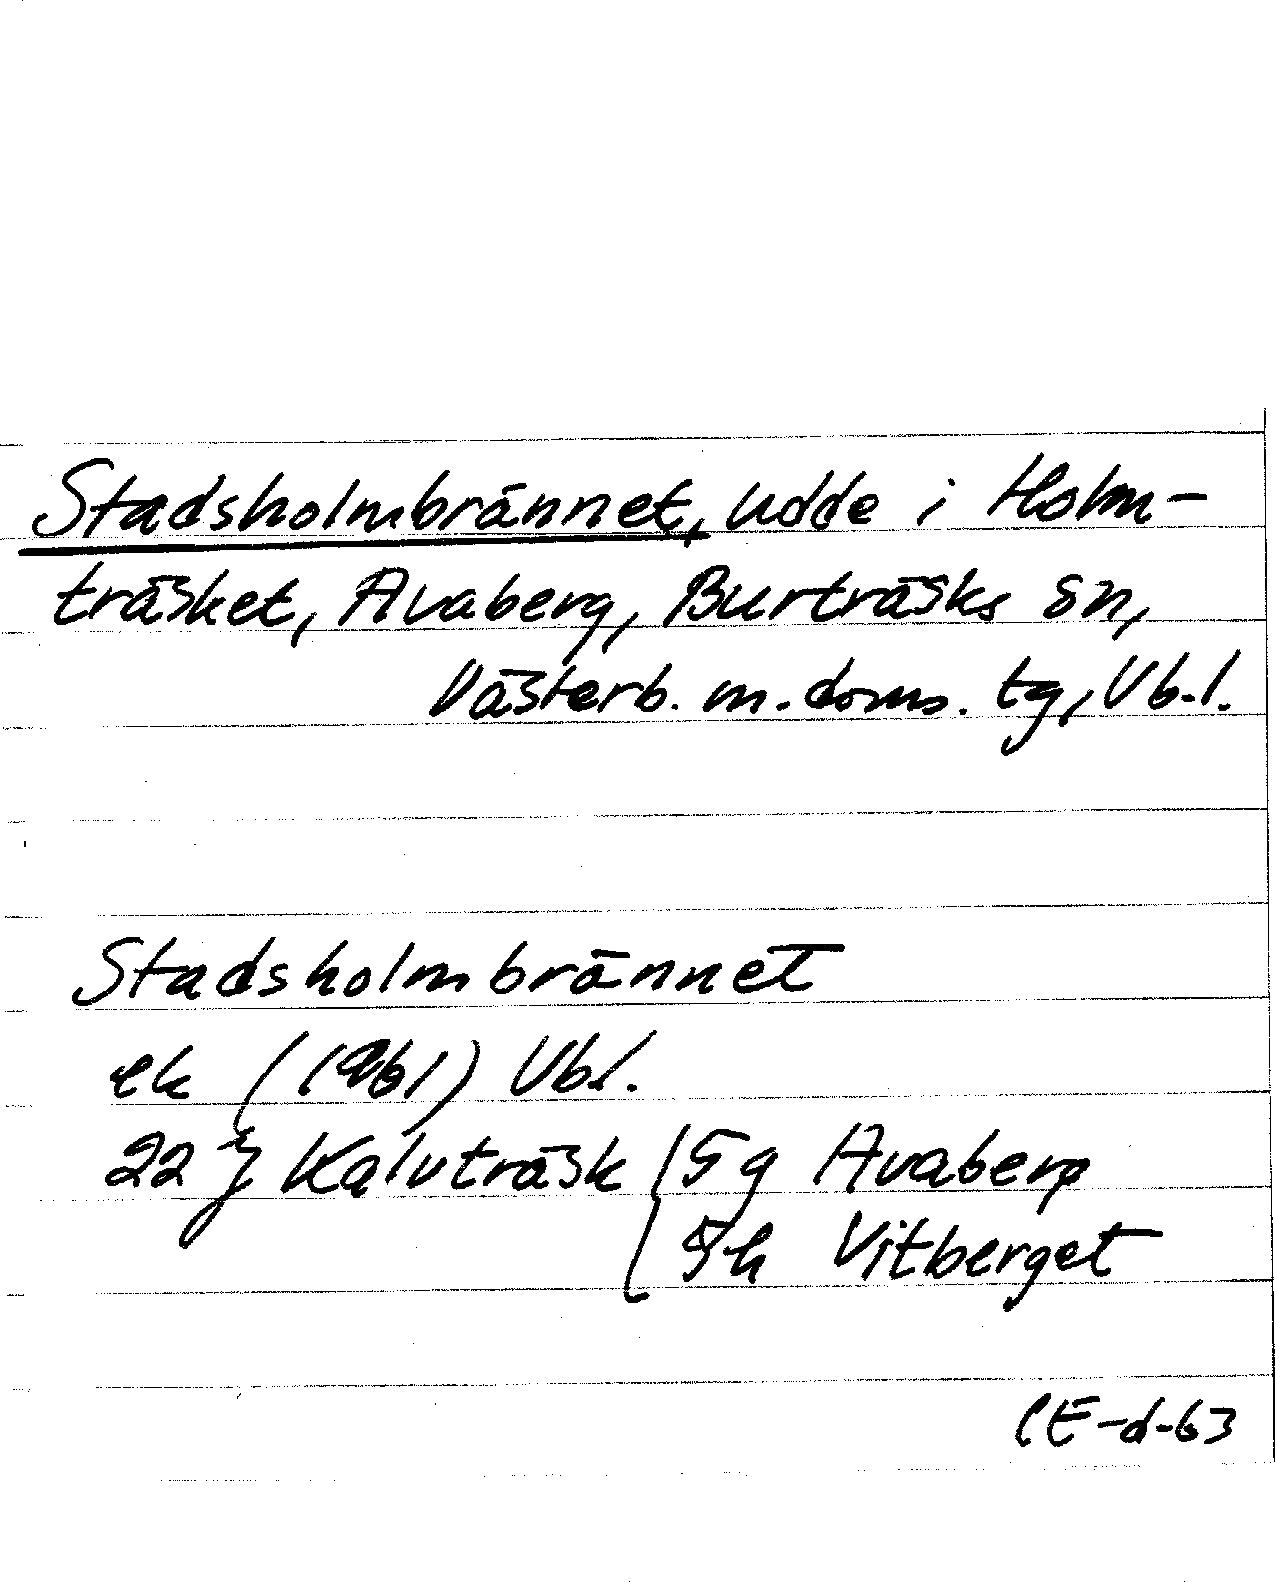 Stadsholmbrännet, udde i Holm-
träsket, Avaberg, Burträsks sn,
Västerb. m. doms. tg, Vb.l.
Stadsholmbrännet
ek (1961) Vbl.
22 J Kalvträsk 5g Avaberg
5h Vitberget
CE-d-63